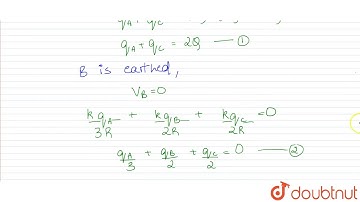 qA + qC = 2Q —— ①
B is earthed,
VB = 0
kqA/3R + kqB/2R + kqC/2R = 0
qA/3 + qB/2 + qC/2 = 0 —— ②
doubtnut